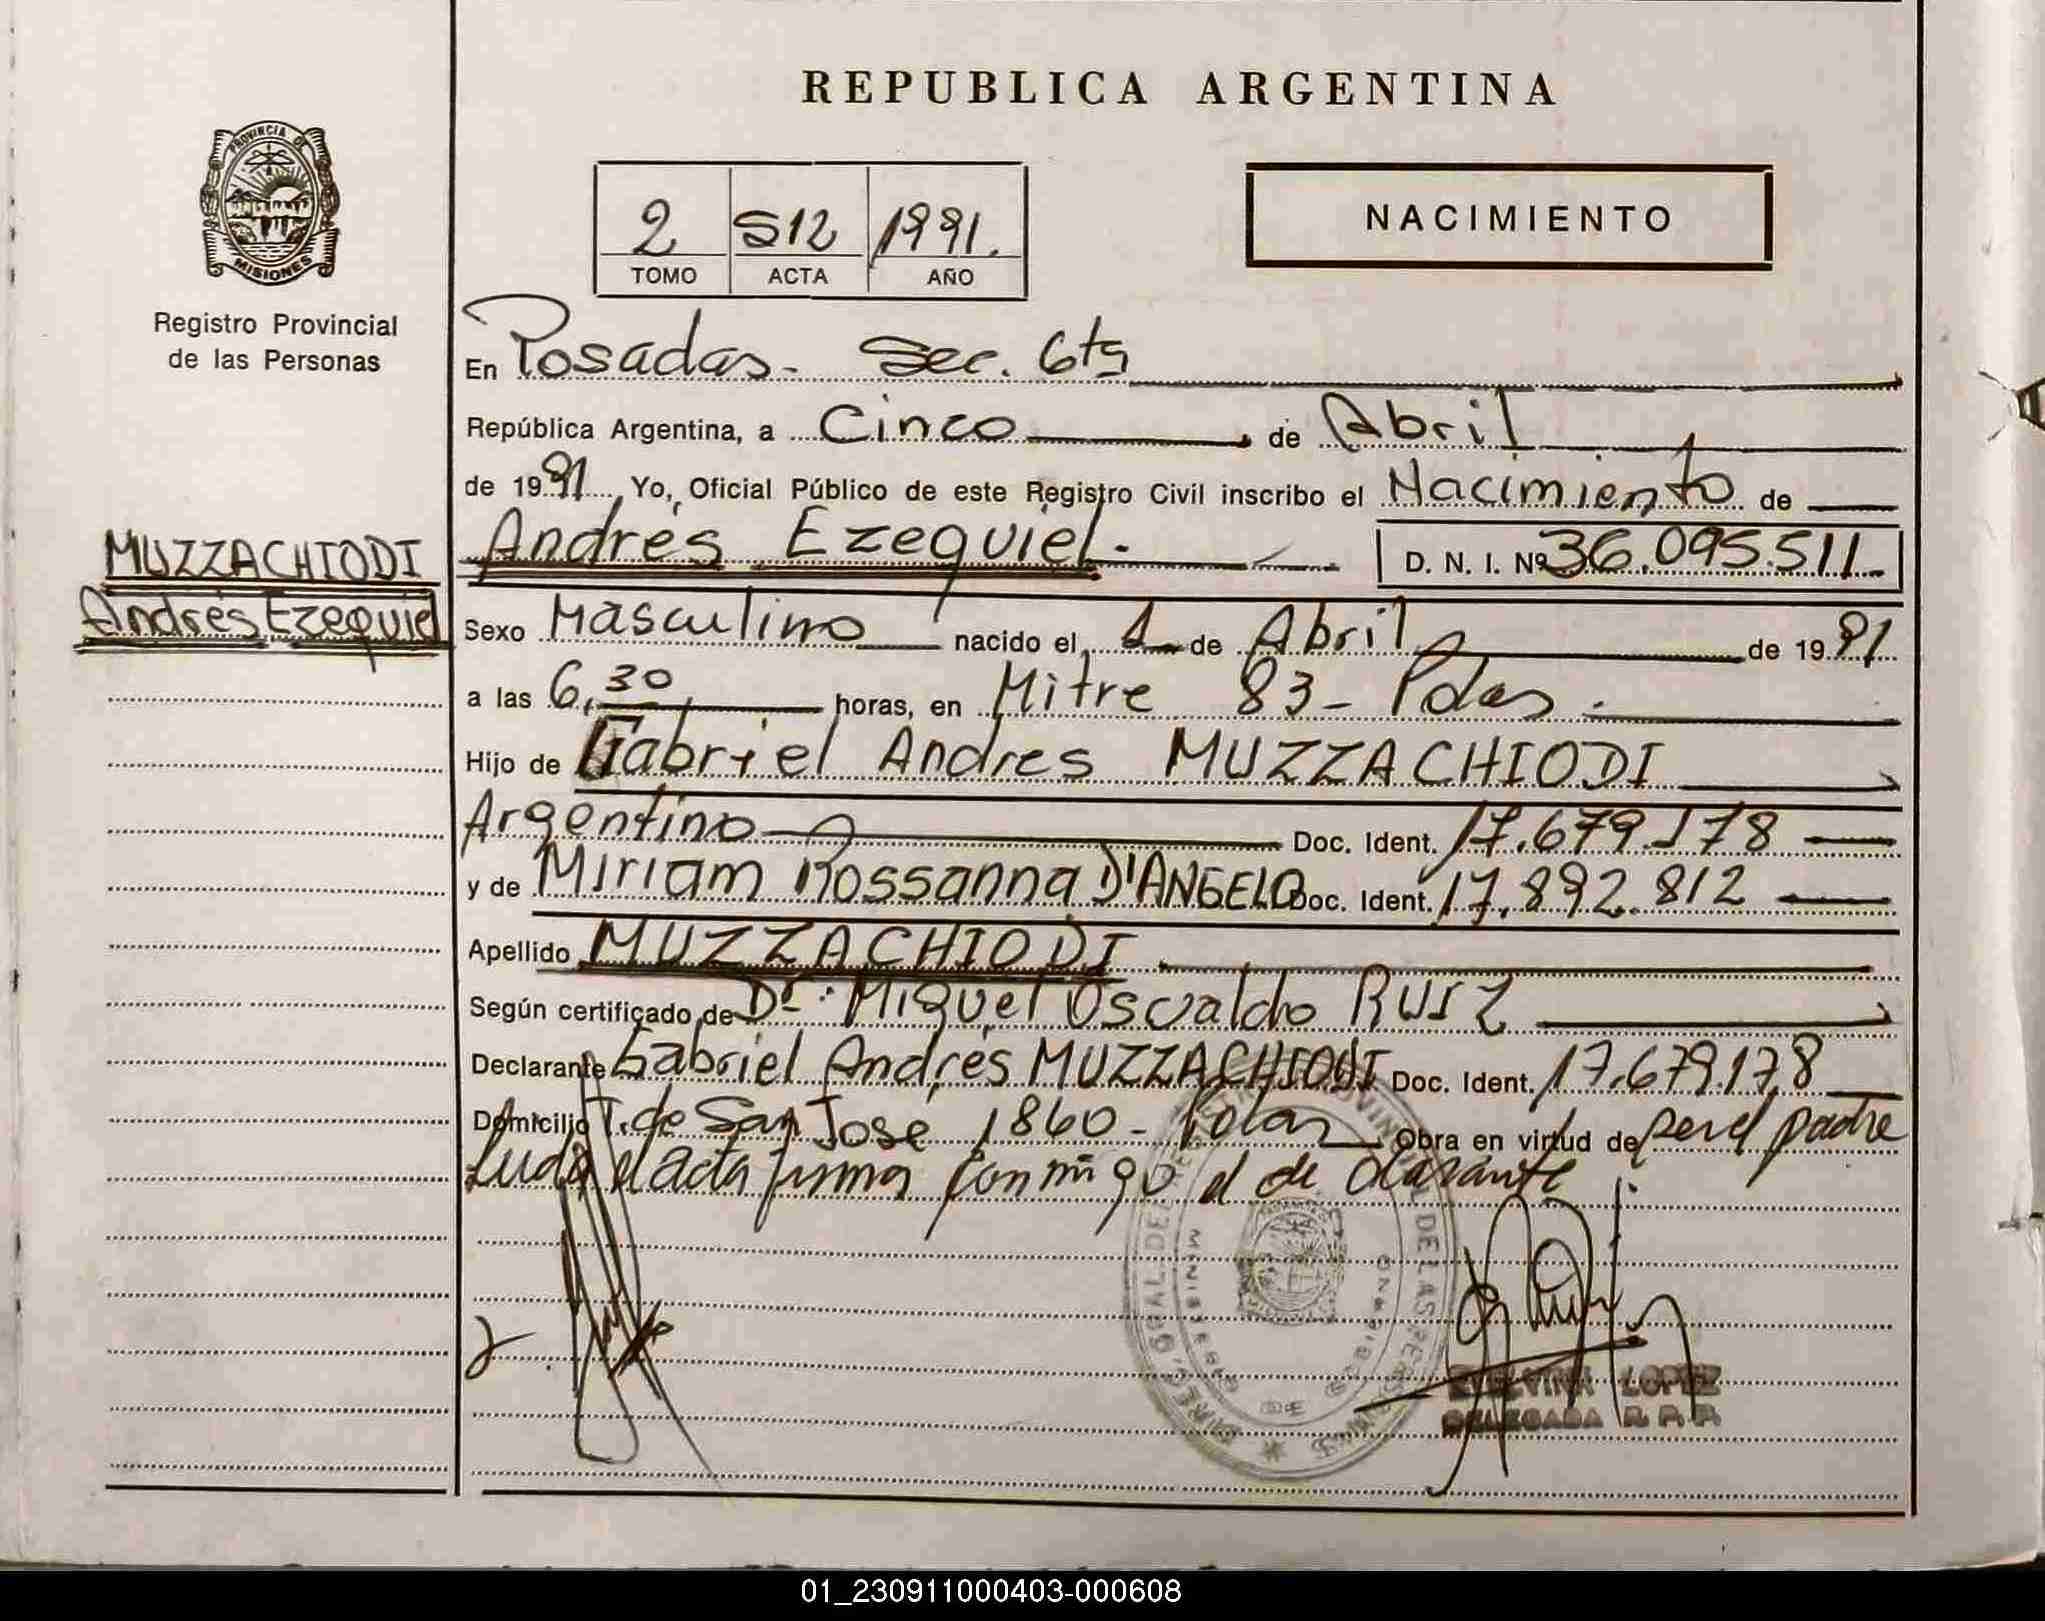 REPUBLICA ARGENTINA
PROVINCIA DE
MISIONES
Registro Provincial
de las Personas
2 512 1991.
TOMO ACTA AÑO
NACIMIENTO
En Posadas. Sec. 6ta
República Argentina, a Cinco de Abril
de 1991 Yo, Oficial Público de este Registro Civil inscribo el Nacimiento de
Andrés Ezequiel. D. N. I. Nº 36.095.511.
MUZZACHIODI
Andrés Ezequiel
Sexo Masculino nacido el de Abril de 1991
a las 6,30 horas, en Mitre 83 - Pdas.
Hijo de Gabriel Andres MUZZACHIODI
Argentino Doc. Ident. 17.679.178
y de Miriam Rossanna D'ANGELO Doc. Ident. 17.892.812
Apellido MUZZACHIODI
Según certificado de Dr. Miguel Osvaldo RUIZ
Declarante Gabriel Andrés MUZZACHIODI Doc. Ident. 17.679.178
Domicilio T. de San José 1860 - Obra en virtud de ser el padre
Leida el acta firma conmigo el declarante.
LOPEZ
DELEGADA R.P.P.
01_230911000403-000608